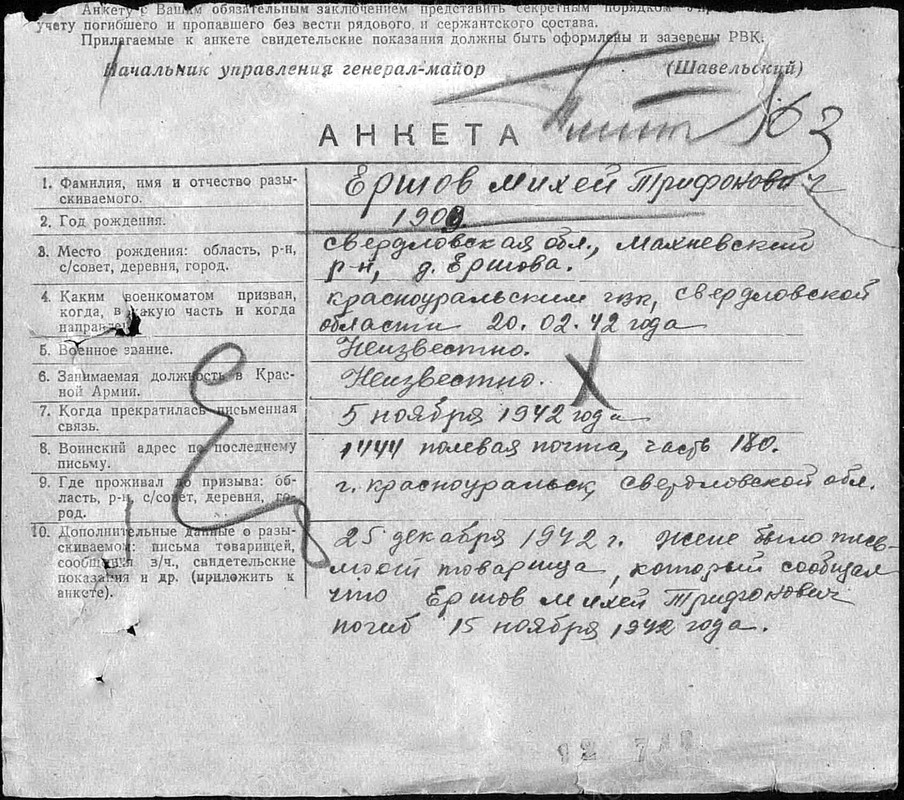 Анкету с Вашим обязательным заключением представить секретным порядком
учету погибшего и пропавшего без вести рядового и сержантского состава.
Прилагаемые к анкете свидетельские показания должны быть оформлены и заверены РВК.
Начальник управления генерал-майор (Шавельский)
163
АНКЕТА
1. Фамилия, имя и отчество разы-
скиваемого.
Ершов Михей Трифонович
2. Год рождения.
1909.
3. Место рождения: область, р-н,
с/совет, деревня, город.
свердловская обл., Махневский
р-н, д. Ершова.
4. Каким военкоматом призван,
когда, в какую часть и когда
направлен.
красноуральским гвк, свердловской
области 20.02.42 года
5. Военное звание.
Неизвестно.
6. Занимаемая должность в Крас-
ной Армии.
Неизвестно.
7. Когда прекратилась письменная
связь.
5 ноября 1942 года
8. Воинский адрес по последнему
письму.
1444 полевая почта, часть 180.
9. Где проживал до призыва: об-
ласть, р-н, с/совет, деревня, го-
род.
г. красноуральск, свердловской обл.
10. Дополнительные данные о разы-
скиваемом: письма товарищей,
сообщения в/ч, свидетельские
показания и др. (приложить к
анкете).
25 декабря 1942 г. жене было пись-
мо от товарища, который сообщал
что Ершов Михей Трифонович
погиб 15 ноября 1942 года.